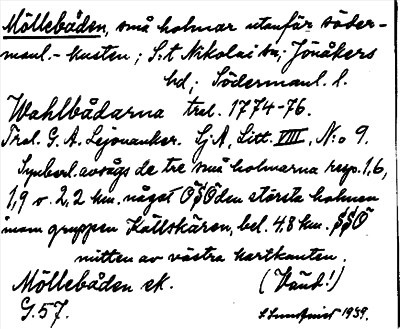 Möllebåden, små holmar utanför söder-
manl.-kusten; S:t Nikolai sn; Jönåkers
hd; Södermanl. l.
Wahlbådarna trol. 1774-76.
Trol. G. A. Lejonanker. Sj A, Litt. VIII, N:o 9.
Synbarl. avsågs de tre små holmarna resp. 1,6,
1,9 o. 2,2 km. något OSO den största holmen
inom gruppen Kallskären, bel. 4,8 km. SSO
mitten av västra kartkanten.
Möllebåden ek. (Vänt!)
G. 57. 1939.